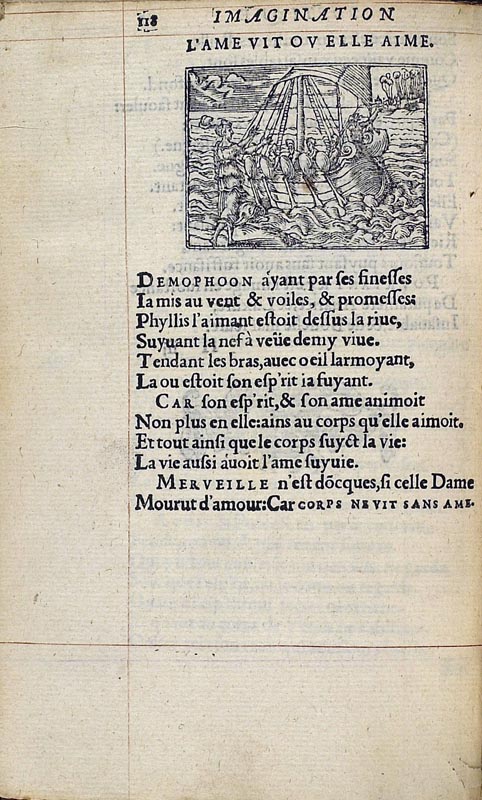 118
IMAGINATION
L'AME VIT OV ELLE AIME.
DEMOPHOON áyant par ses finesses
Ia mis au vent & voiles, & promesses:
Phyllis l'aimant estoit dessus la riue,
Suyuant la nef à veüe demy viue.
Tendant les bras, auec oeil larmoyant,
La ou estoit son esp'rit ia fuyant.
CAR son esp'rit, & son ame animoit
Non plus en elle: ains au corps qu'elle aimoit.
Et tout ainsi que le corps suyct la vie:
La vie aussi áuoit l'ame suyuie.
MERVEILLE n'est dõcques, si celle Dame
Mourut d'amour: Car CORPS NE VIT SANS AME.